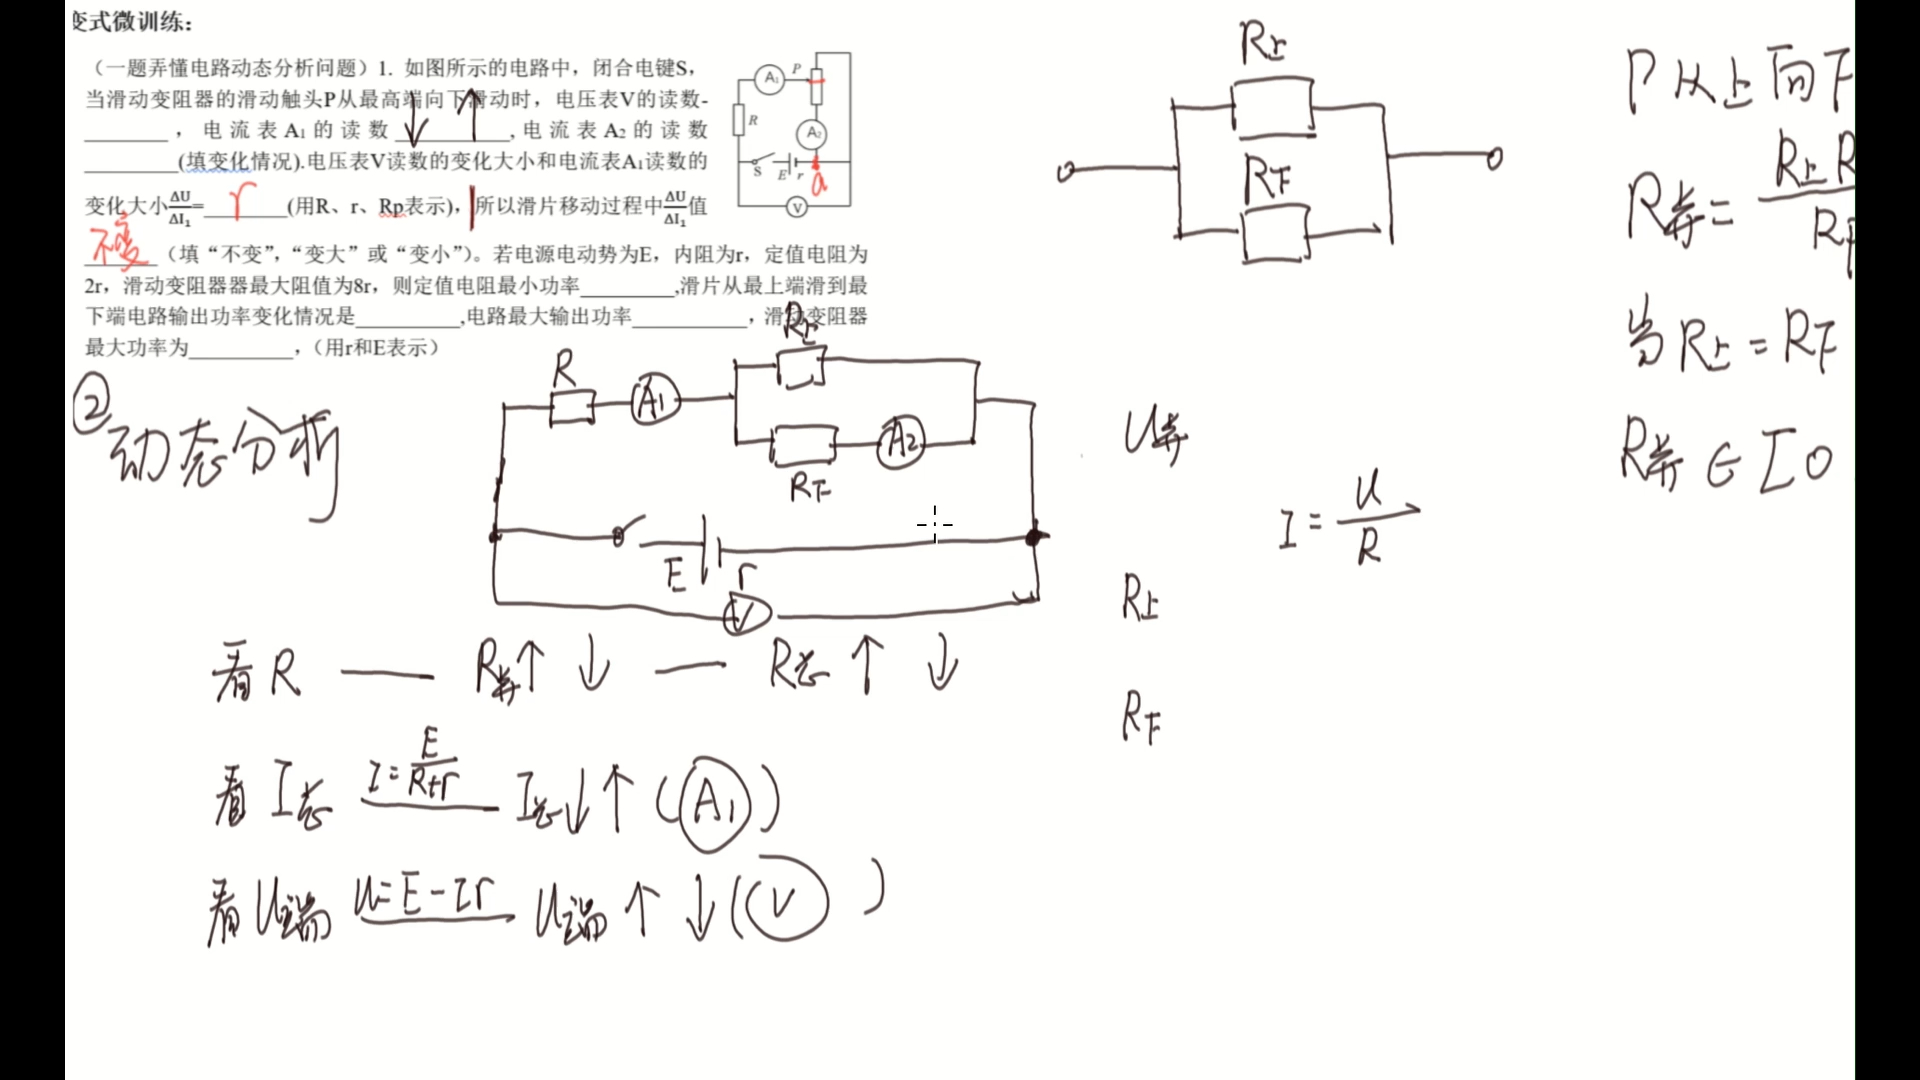 变式微训练：
（一题弄懂电路动态分析问题）1. 如图所示的电路中，闭合电键S，
当滑动变阻器的滑动触头P从最高端向下滑动时，电压表V的读数-
________，电流表A₁的读数 ↓ ↑ ,电流表A₂的读数
_________(填变化情况).电压表V读数的变化大小和电流表A₁读数的
变化大小ΔU/ΔI₁=___r___(用R、r、Rp表示)，所以滑片移动过程中ΔU/ΔI₁值
不变（填“不变”，“变大”或“变小”）。若电源电动势为E，内阻为r，定值电阻为
2r，滑动变阻器器最大阻值为8r，则定值电阻最小功率_________,滑片从最上端滑到最
下端电路输出功率变化情况是__________,电路最大输出功率___________，滑动变阻器
最大功率为__________，（用r和E表示）
A₁ P
R
A₂
S E r a
V
R上
R下
P从上向下
R并= R上R
R下
当R上=R下
R并∈[0
② 动态分析
R A1 R上
R下 A2
E r
V
U并
I=U/R
R上
R下
看R — R并↑ ↓ — R总↑ ↓
看I总 I=E/R+r I总↓↑(A1)
看U端 U=E-Ir U端↑ ↓(V)